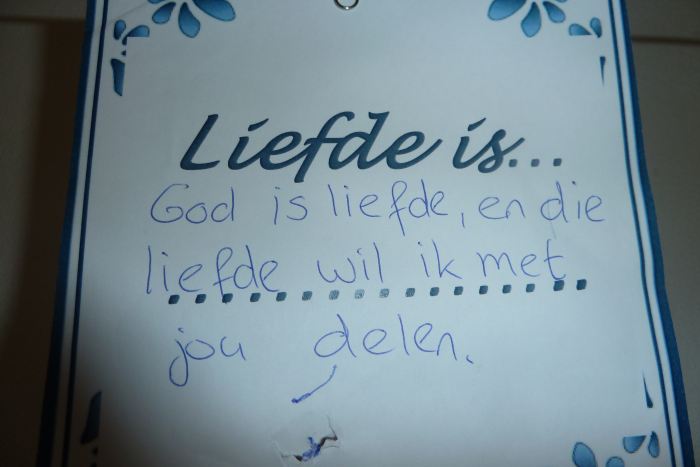 Liefde is...
God is liefde, en die
liefde wil ik met
jou delen.